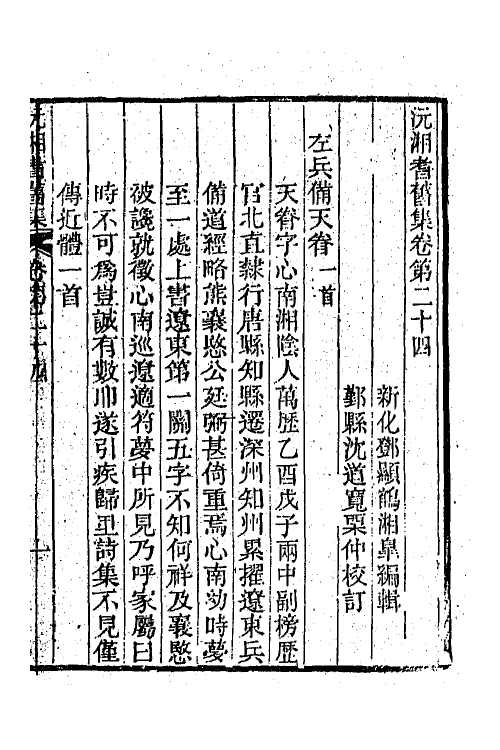 沅湘耆舊集卷第二十四
新化鄧顯鶴湘臯編輯
鄞縣沈道寬栗仲校訂
左兵備天眷一首
天眷字心南湘陰人萬歷乙酉戊子兩中副榜歷
官北直隸行唐縣知縣遷深州知州累擢遼東兵
備道經略熊襄愍公廷弼甚倚重焉心南幼時夢
至一處上書遼東第一關五字不知何祥及襄愍
被讒就徵心南巡遼適符夢中所見乃呼家屬曰
時不可為豈誠有數耶遂引疾歸里詩集不見僅
傳近體一首
沅湘耆舊集 卷第二十四 一